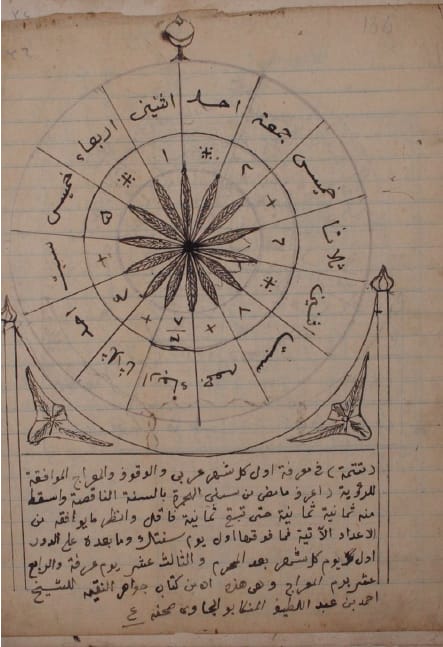 احد
جمعة
خميس
ثلاثا
اثنين
سبت
جمعه
اربعاء
ثلاثا
احد
سبت
خميس
اربعاء
اثنين
(تتمة) في معرفة اول كل شهر عربي والوقوف والمعراج الموافقة
للرؤية (اعرف ما مضى من سني الهجرة بالسنة الناقصة واسقط
منه ثمانية ثمانية حتى تبقى ثمانية فاقل وانظر ما يوافقه من
الاعداد الآتية فما فوقها اول يوم سنتك وما بعده على الدور
اول يوم كل شهر بعد المحرم والثالث عشر يوم عرفة والرابع
عشر يوم المعراج وهي هذه اه من كتاب جواهر النقيه للشيخ
احمد بن عبد اللطيف الجاوى صحفه ع